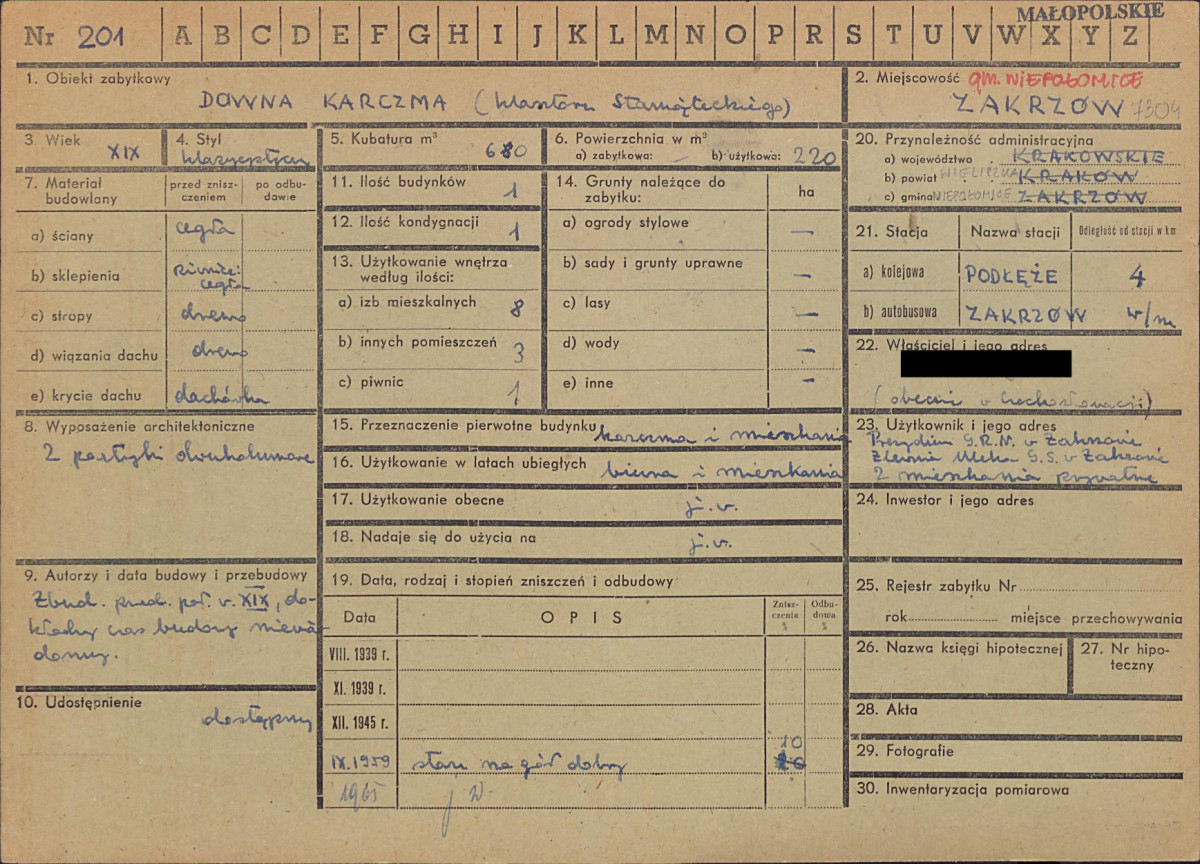 MAŁOPOLSKIE
Nr 201 A B C D E F G H I J K L M N O P R S T U V W X Y Z
1. Obiekt zabytkowy
DOWNA KARCZMA (klasztoru Staniąteckiego)
2. Miejscowość gm. NIEPOŁOMICE
ZAKRZÓW 7304
3 Wiek
XIX
4. Styl
klasycystyczny
5. Kubatura m³
680
6. Powierzchnia w m²
a) zabytkowa: — b) użytkowa: 220
7. Materiał budowlany
przed zniszczeniem
po odbudowie
a) ściany cegła
b) sklepienia Piwnice: cegła
c) stropy drewno
d) wiązania dachu drewno
e) krycie dachu dachówka
8. Wyposażenie architektoniczne
2 portyki dwukolumnowe
9. Autorzy i data budowy i przebudowy
Zbud. przed. poł. w. XIX, do-
kładny czas budowy niewia-
domy.
10. Udostępnienie
dostępny
11. Ilość budynków 1
12. Ilość kondygnacji 1
13. Użytkowanie wnętrza
według ilości:
a) izb mieszkalnych 8
b) innych pomieszczeń 3
c) piwnic 1
14. Grunty należące do
zabytku: ha
a) ogrody stylowe —
b) sady i grunty uprawne —
c) lasy —
d) wody —
e) inne —
15. Przeznaczenie pierwotne budynku karczma i mieszkania
16. Użytkowanie w latach ubiegłych biura i mieszkania
17. Użytkowanie obecne j.w.
18. Nadaje się do użycia na j.w.
19. Data, rodzaj i stopień zniszczeń i odbudowy
Data OPIS Zniszczenia % Odbudowa %
VIII. 1939 r.
XI. 1939 r.
XII. 1945 r.
10
IX.1959 stan na ogół dobry
1965 j w
20. Przynależność administracyjna
a) województwo KRAKOWSKIE
b) powiat WIELICZKA KRAKÓW
c) gmina NIEPOŁOMICE ZAKRZÓW
21. Stacja Nazwa stacji Odległość od stacji w km
a) kolejowa PODŁĘŻE 4
b) autobusowa ZAKRZÓW w/m
22. Właściciel i jego adres
(obecnie w Czechosłowacji)
23. Użytkownik i jego adres
Prezydium G.R.N. w Zakrzowie
Zlewnia Mleka G.S. w Zakrzowie
2 mieszkania prywatne
24. Inwestor i jego adres
25. Rejestr zabytku Nr
rok miejsce przechowywania
26. Nazwa księgi hipotecznej
27. Nr hipoteczny
28. Akta
29. Fotografie
30. Inwentaryzacja pomiarowa